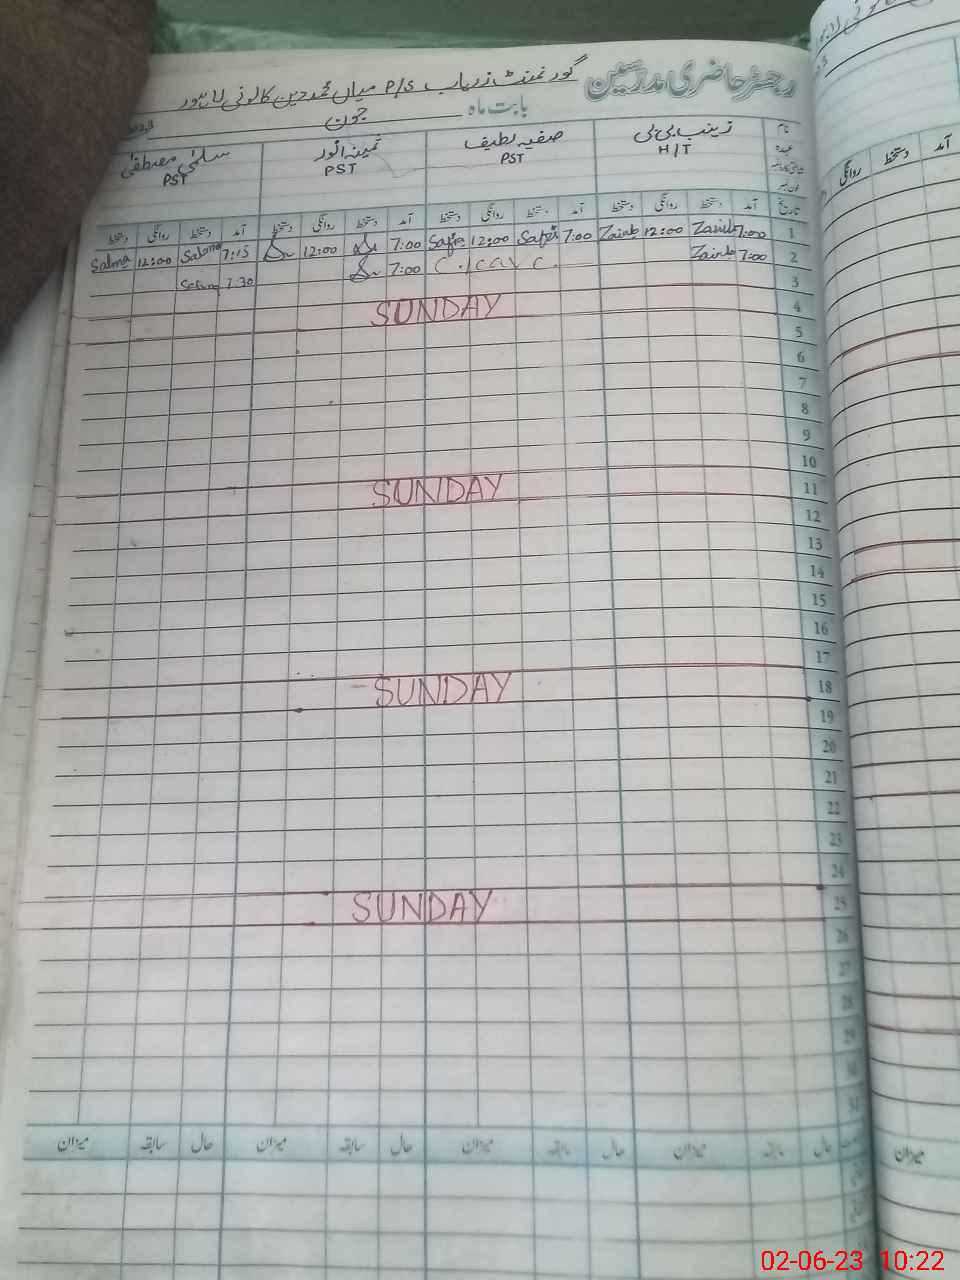 رجسٹر حاضری مدرسین گورنمنٹ زریاب P/S میاں محمد دین کالونی لاہور
بابت ماہ جون
نام زینب بی بی صفیہ لطیف ثمینہ انور سلمٰی مصطفٰی
عہدہ H/T PST PST PST
تاریخ آمد دستخط روانگی دستخط آمد دستخط روانگی دستخط آمد دستخط روانگی دستخط آمد دستخط روانگی دستخط
1 7:00 Zainb 12:00 Zainb 7:00 Safia 12:00 Safia 7:00 12:00 7:15 Salma 12:00 Salma
2 7:00 Zainb C.leave. 7:00 7:30 Salma
3
4 SUNDAY
5
6
7
8
9
10
11 SUNDAY
12
13
14
15
16
17
18 SUNDAY
19
20
21
22
23
24
25 SUNDAY
26
27
28
29
30
31
حال سابقہ میزان حال سابقہ میزان حال سابقہ میزان حال سابقہ میزان
آمد دستخط روانگی
میزان
02-06-23 10:22